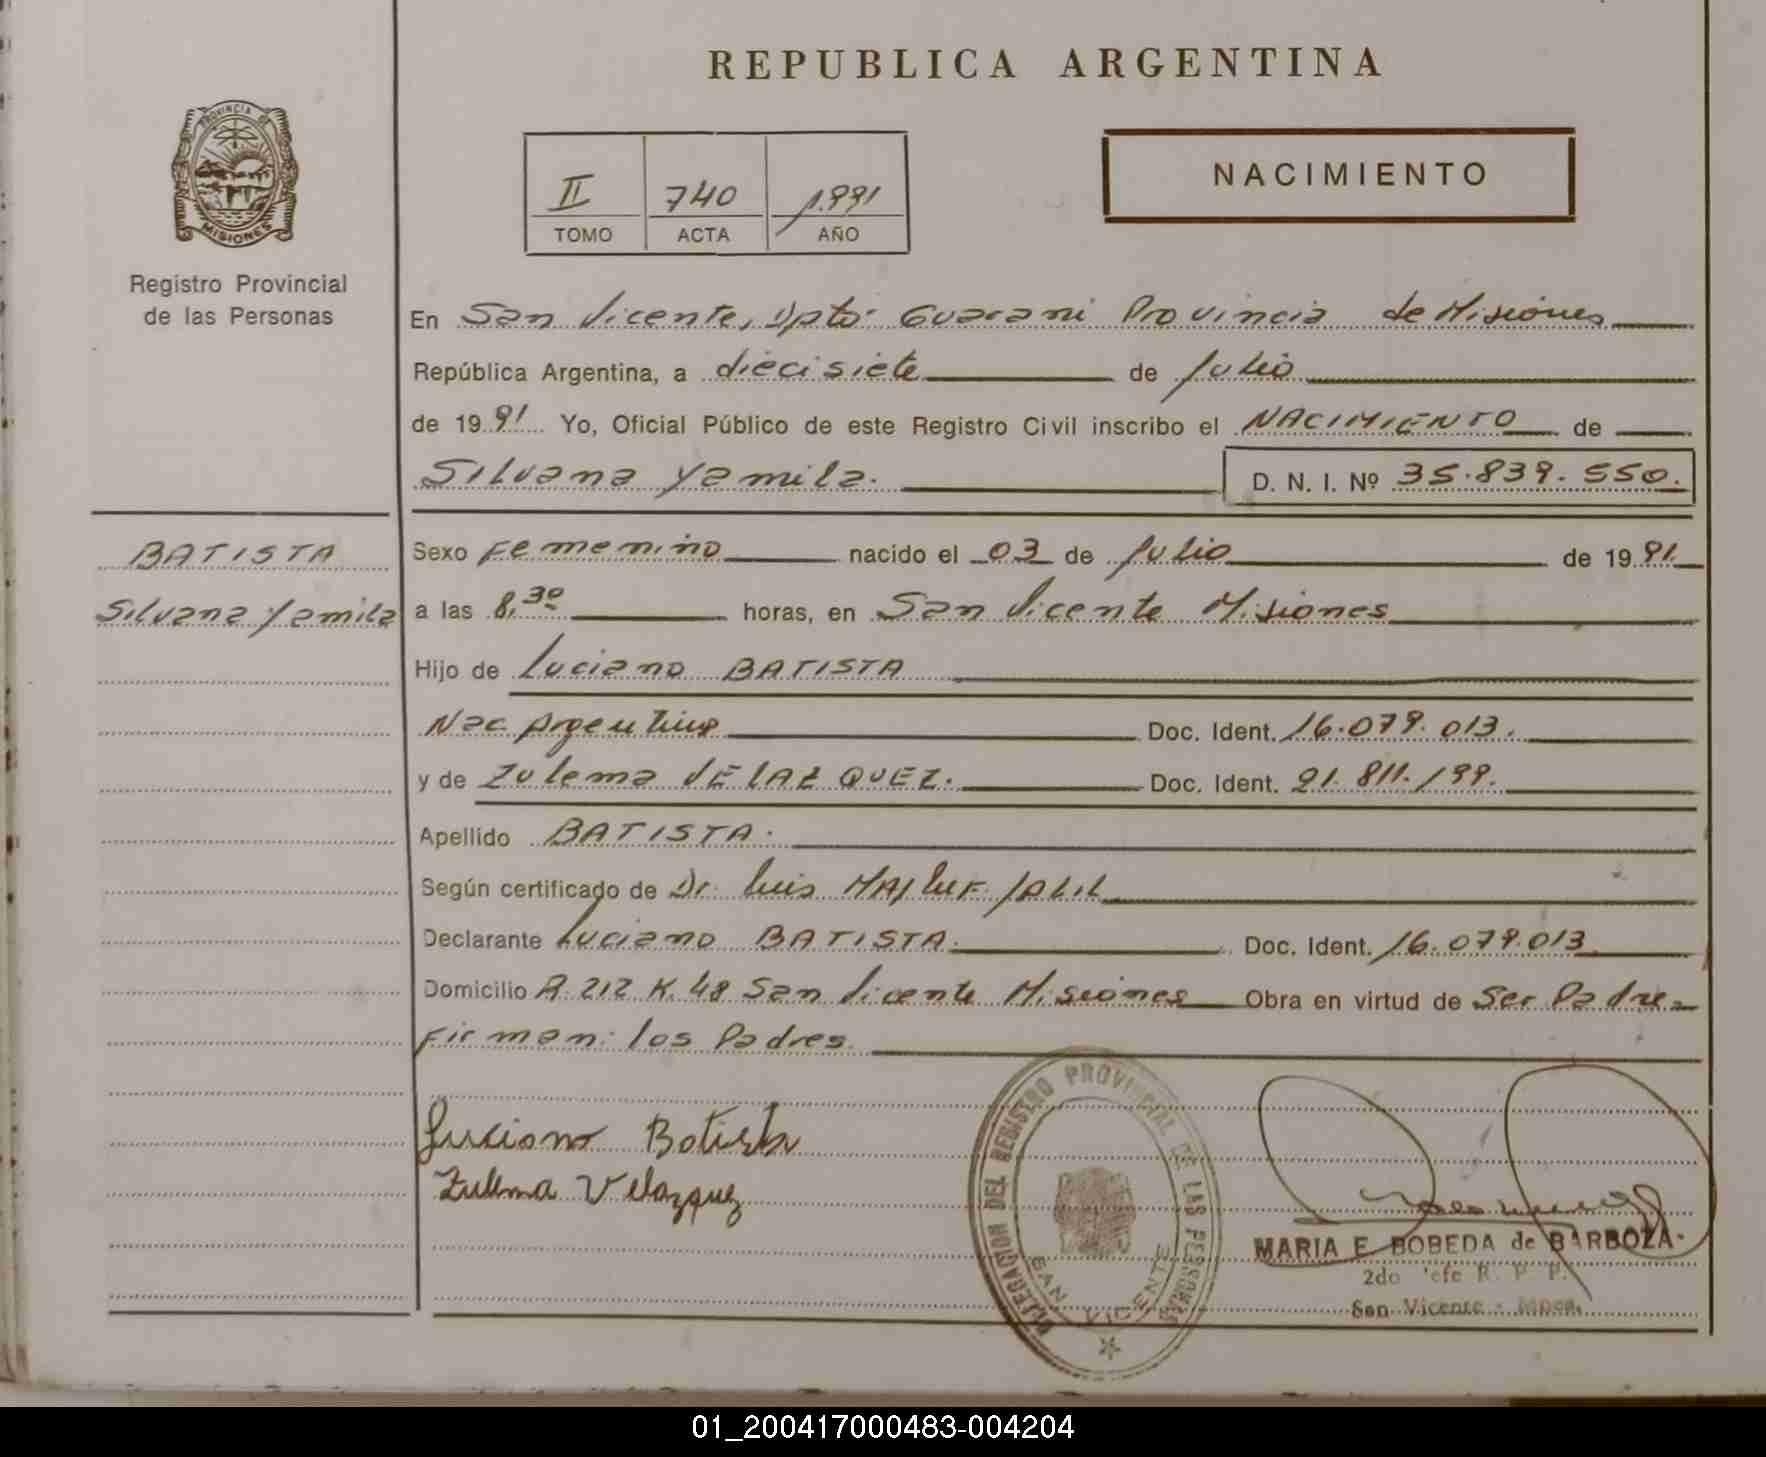 REPUBLICA ARGENTINA
PROVINCIA DE
MISIONES
Registro Provincial
de las Personas
II 740 1.991
TOMO ACTA AÑO
NACIMIENTO
En San Vicente, Dpto. Guarani Provincia de Misiones
República Argentina, a diecisiete de Julio
de 19 91 Yo, Oficial Público de este Registro Civil inscribo el NACIMIENTO de
Silvana Yamila. D. N. I. Nº 35.839.550.
BATISTA
Silvana Yamila
Sexo Femenino nacido el 03 de Julio de 19 91.
a las 8,30 horas, en San Vicente Misiones
Hijo de Luciano BATISTA
Nac. Argentina Doc. Ident. 16.079.013.
y de Zulema VELAZQUEZ. Doc. Ident. 21.811.199.
Apellido BATISTA.
Según certificado de Dr. Luis JALIL
Declarante Luciano BATISTA. Doc. Ident. 16.079.013
Domicilio R. 212 K. 48 San Vicente Misiones Obra en virtud de Ser Padre
Firman: los Padres.
Luciano Batista
Zulema Velazquez
DELEGACION DEL REGISTRO PROVINCIAL DE LAS PERSONAS
SAN VICENTE
MARIA E. BOBEDA de BARBOZA
2do Jefe R. P. P.
San Vicente - Mnes.
01_200417000483-004204